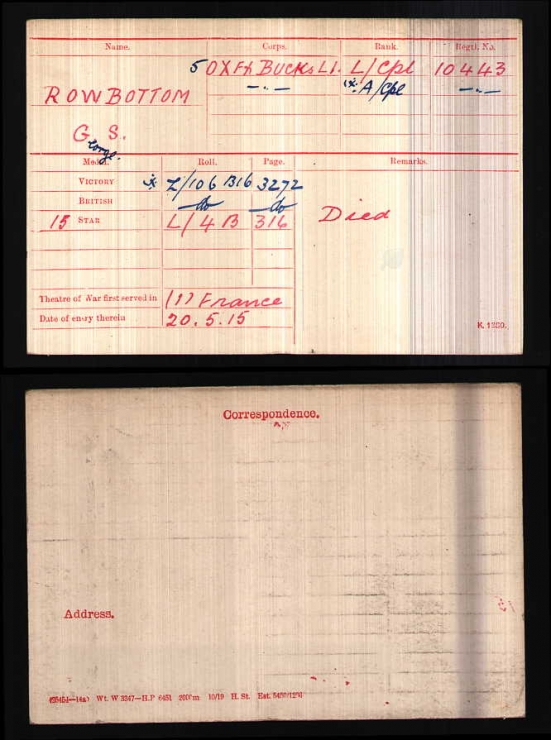 Name. Corps. Rank. Regtl. No.
5 OXF & BUCKS L.I. L/Cpl 10443
ROWBOTTOM — „ — A/Cpl — „ —
G. S.
George.
Medal. Roll. Page. Remarks.
VICTORY L/106 B16 3272
BRITISH do do
15 STAR L/4 B 316 Died
Theatre of War first served in (1) France
Date of entry therein 20.5.15
K. 1380.
Correspondence.
Address.
Wt. W 3347—H.P 10/19 H. St.